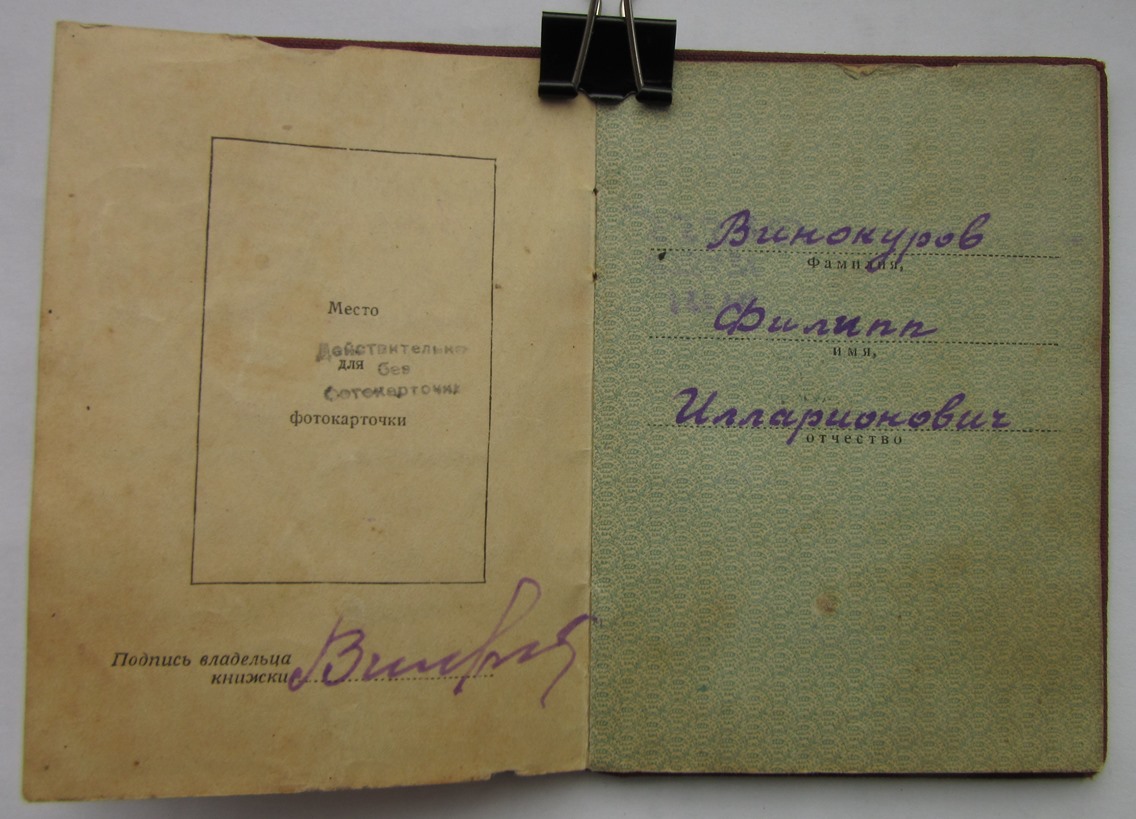 Место
Действительно
для без
фотокарточки
фотокарточки
Подпись владельца
книжки
Винокуров
Фамилия,
Филипп
имя,
Илларионович
отчество